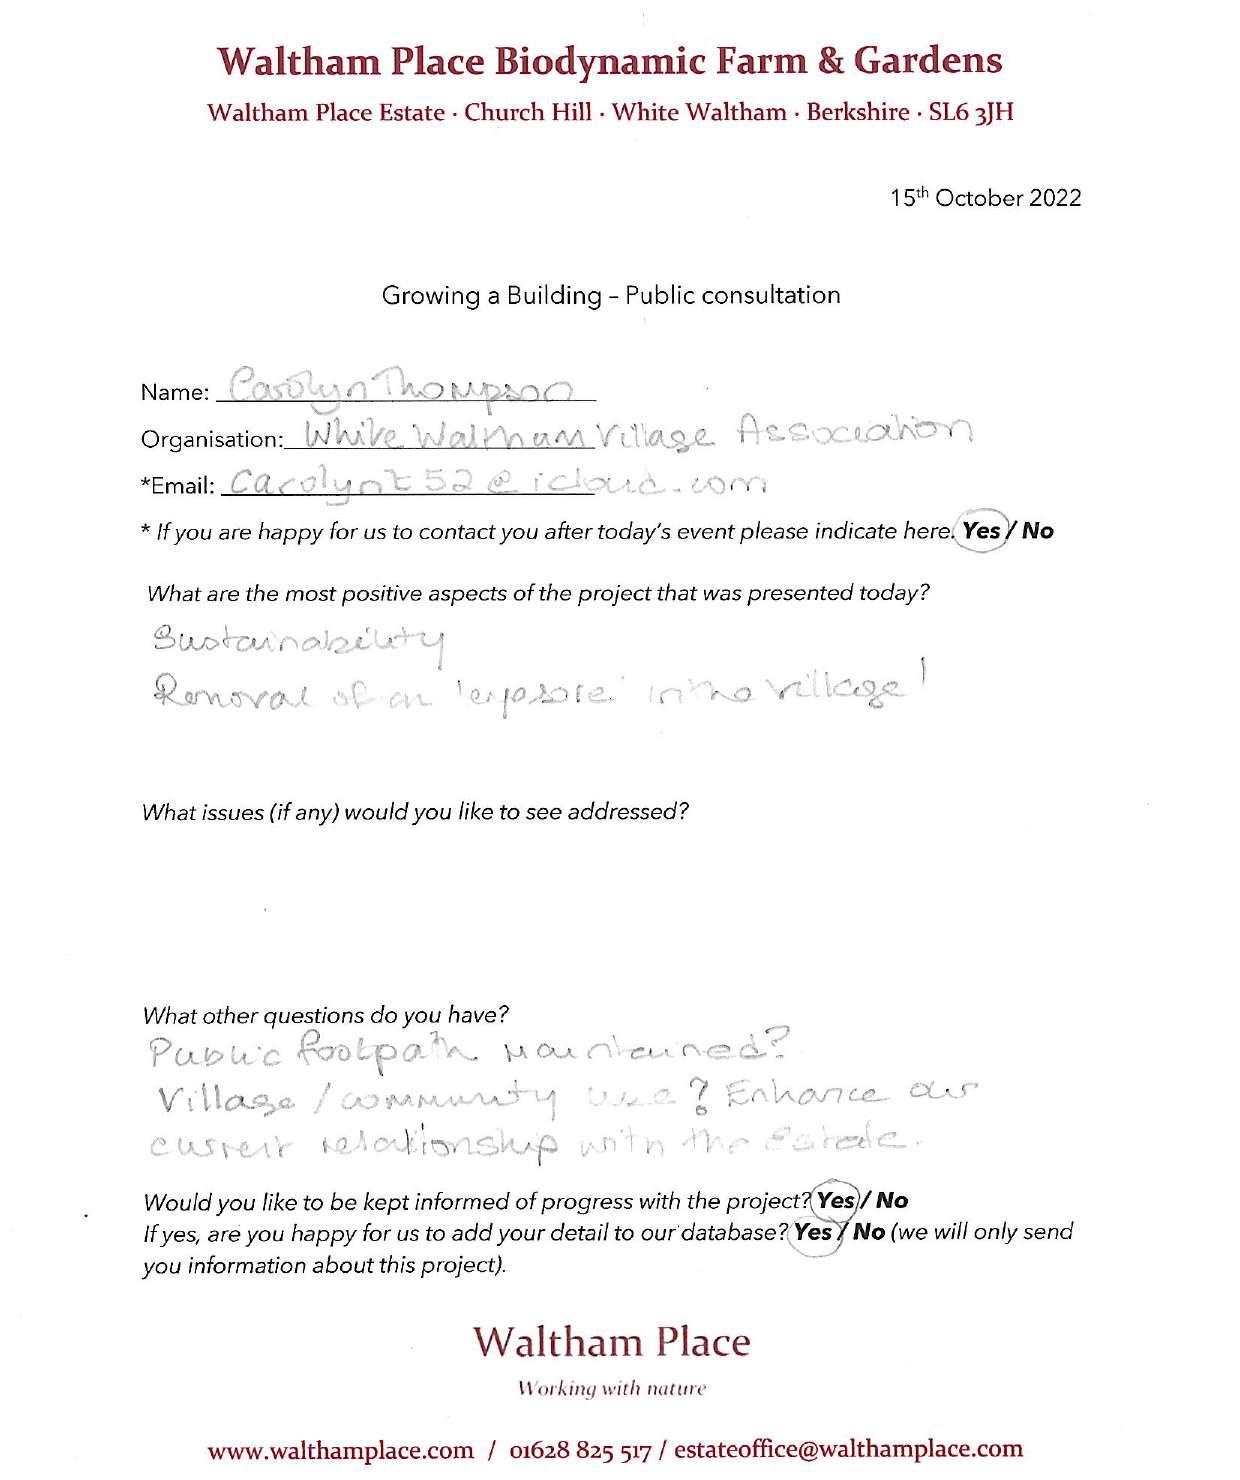 Waltham Place Biodynamic Farm & Gardens
Waltham Place Estate · Church Hill · White Waltham · Berkshire · SL6 3JH
15th October 2022
Growing a Building – Public consultation
Name: Carolyn Thompson
Organisation: White Waltham Village Association
*Email: carolynt52@icloud.com
* If you are happy for us to contact you after today's event please indicate here. Yes / No
What are the most positive aspects of the project that was presented today?
Sustainability
Removal of an 'eyesore' in the village!
What issues (if any) would you like to see addressed?
What other questions do you have?
Public footpath maintained?
Village / community use? Enhance our
current relationship with the Estate.
Would you like to be kept informed of progress with the project? Yes / No
If yes, are you happy for us to add your detail to our database? Yes / No (we will only send
you information about this project).
Waltham Place
Working with nature
www.walthamplace.com / 01628 825 517 / estateoffice@walthamplace.com